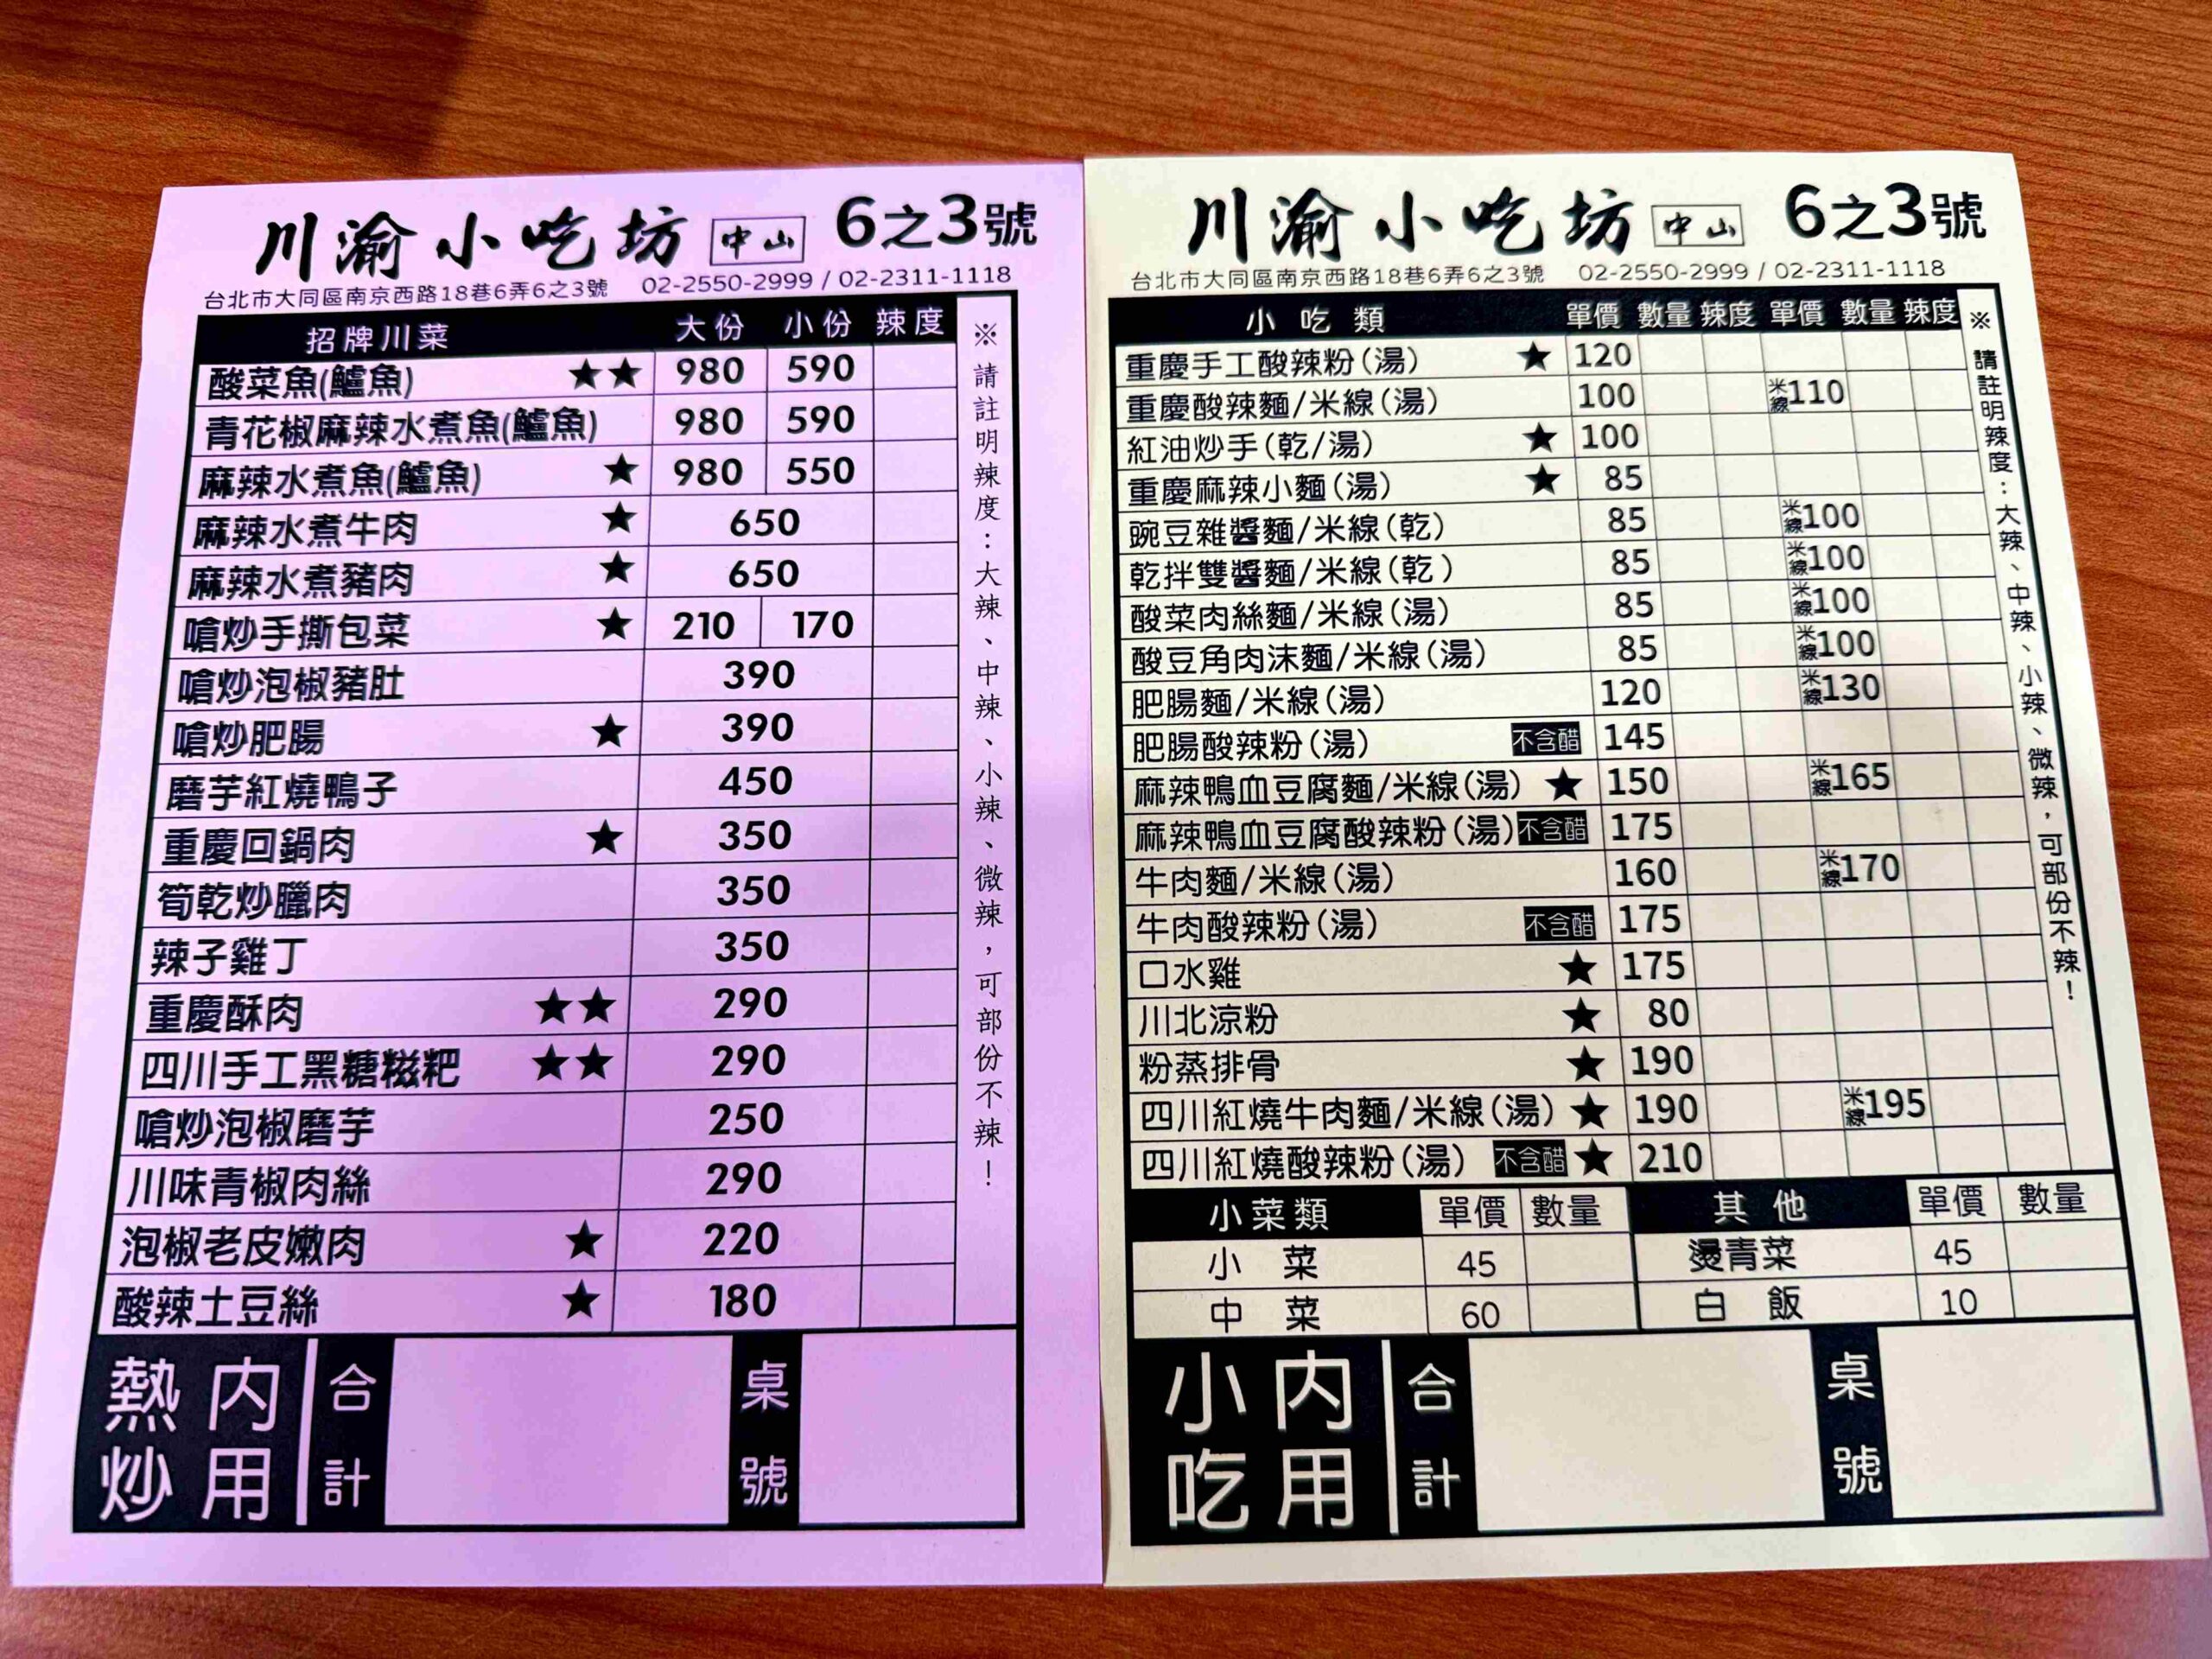 川渝小吃坊 中山 6之3號
台北市大同區南京西路18巷6弄6之3號 02-2550-2999 / 02-2311-1118
招牌川菜 大份 小份 辣度
酸菜魚(鱸魚) ★★ 980 590
青花椒麻辣水煮魚(鱸魚) 980 590
麻辣水煮魚(鱸魚) ★ 980 550
麻辣水煮牛肉 ★ 650
麻辣水煮豬肉 ★ 650
嗆炒手撕包菜 ★ 210 170
嗆炒泡椒豬肚 390
嗆炒肥腸 ★ 390
磨芋紅燒鴨子 450
重慶回鍋肉 ★ 350
筍乾炒臘肉 350
辣子雞丁 350
重慶酥肉 ★★ 290
四川手工黑糖糍粑 ★★ 290
嗆炒泡椒磨芋 250
川味青椒肉絲 290
泡椒老皮嫩肉 ★ 220
酸辣土豆絲 ★ 180
※請註明辣度：大辣、中辣、小辣、微辣，可部份不辣！
熱炒 內用 合計 桌號
川渝小吃坊 中山 6之3號
台北市大同區南京西路18巷6弄6之3號 02-2550-2999 / 02-2311-1118
小吃類 單價 數量 辣度 單價 數量 辣度
重慶手工酸辣粉(湯) ★ 120
重慶酸辣麵/米線(湯) 100 米線110
紅油炒手(乾/湯) ★ 100
重慶麻辣小麵(湯) ★ 85
豌豆雜醬麵/米線(乾) 85 米線100
乾拌雙醬麵/米線(乾) 85 米線100
酸菜肉絲麵/米線(湯) 85 米線100
酸豆角肉沫麵/米線(湯) 85 米線100
肥腸麵/米線(湯) 120 米線130
肥腸酸辣粉(湯) 不含醋 145
麻辣鴨血豆腐麵/米線(湯) ★ 150 米線165
麻辣鴨血豆腐酸辣粉(湯) 不含醋 175
牛肉麵/米線(湯) 160 米線170
牛肉酸辣粉(湯) 不含醋 175
口水雞 ★ 175
川北涼粉 ★ 80
粉蒸排骨 ★ 190
四川紅燒牛肉麵/米線(湯) ★ 190 米線195
四川紅燒酸辣粉(湯) 不含醋 ★ 210
※請註明辣度：大辣、中辣、小辣、微辣，可部份不辣！
小菜類 單價 數量 其他 單價 數量
小菜 45 燙青菜 45
中菜 60 白飯 10
小吃 內用 合計 桌號